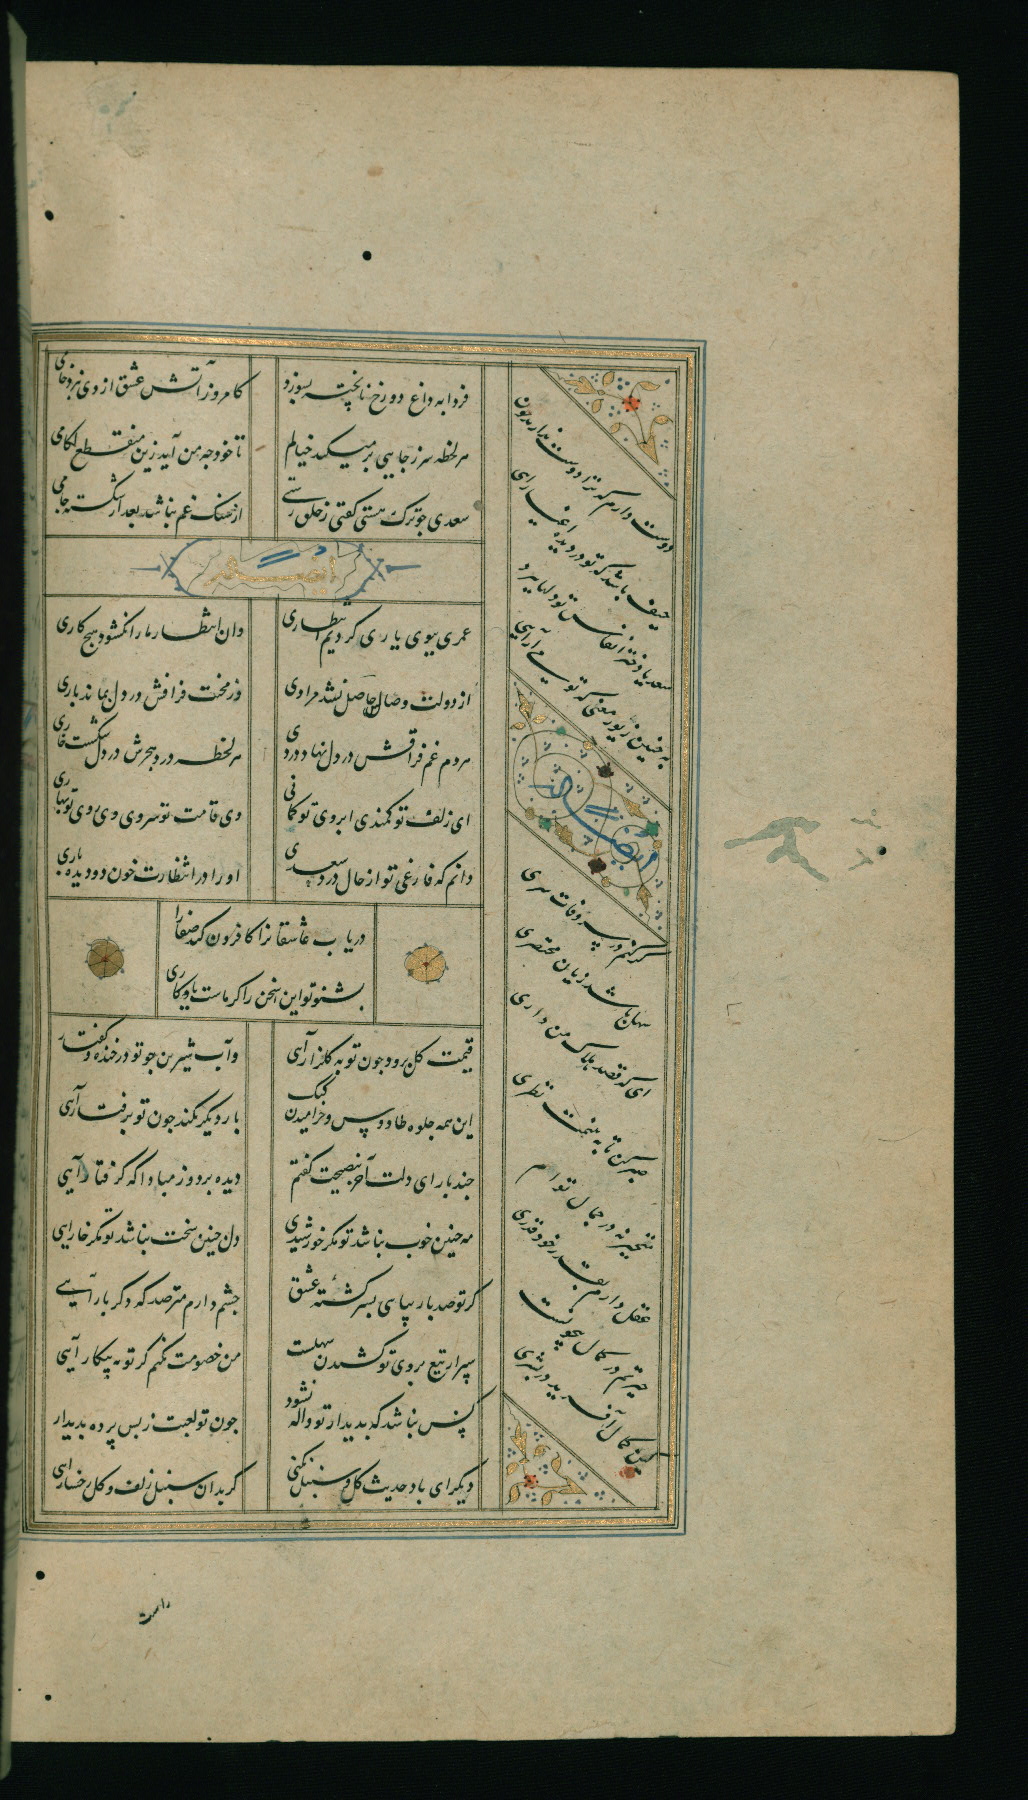 فردا به داغ دوزخ ناپخته بسوزد
کامروز آتش عشق از وی نبرد خامی
هر لحظه سر ز جایی بر میکند خیالم
تا خود چه من آید زین منقطع لکامی
سعدی چو ترک هستی گفتی ز خلق رستی
از سنگ غم نباشد بعد از شکسته جامی
ایضا له
عمری ببوی یاری کردیم انتظاری
وان انتظار ما را نکشود هیچ کاری
از دولت وصالش حاصل نشد مرادی
وز محنت فراقش در دل بماند باری
هر دم غم فراقش در دل نهاد دردی
هر لحظه درد هجرش در دل شکست خاری
ای زلف تو کمندی ابروی تو کمانی
وی قامت تو سروی وی روی تو بهاری
دانم که فارغی تو از حال درد سعدی
او را در انتظارت خون دو دیده باری
دریاب عاشقانرا کافزون کند صفا را
بشنو تو این سخن را کز ماست یادگاری
قیمت گل برود چون تو به گلزار آیی
وآب شیرین چو تو در خنده و گفتار
این همه جلوه طاووس و خرامیدن کبک
بار دیگر نکند چون تو برفتار آیی
چند بار ای دلت آخر بنصیحت گفتم
دیده بردوز مبادا که گرفتار آیی
مه چنین خوب نباشد تو مگر خورشیدی
دل چنین سخت نباشد تو مگر خارایی
گر تو صد بار بیایی بسر کشته عشق
چشم دارم مترصد که دگر بار آیی
سپر از تیغ بروی تو کشیدن سهلست
من خصومت نکنم گر تو به پیکار آیی
کس نباشد که بدیدار تو واله نشود
چون تو لعبت ز پس پرده پدیدار
دیگر ای باد حدیث گل و سنبل نکنی
گر بدان سنبل زلف و گل رخسار آیی
دوست دارم که ترا دوست ندارد چون
حیف باشد که تو در دیده اغیار آیی
سعدیا دختر انفاس تو دلها ببرد
به چنین زیور معنی که تو می آرایی
ایضا له
گر کنم در سر وفات سری
سهل باشد زیان مختصری
ای که قصد هلاک من داری
صبر کن تا به بینمت نظری
متحیر نه در جمال توام
عقل دارم بقدر خود قدری
حیرتم در کمال بیچونست
کین کمال آفرید در بشری
راست